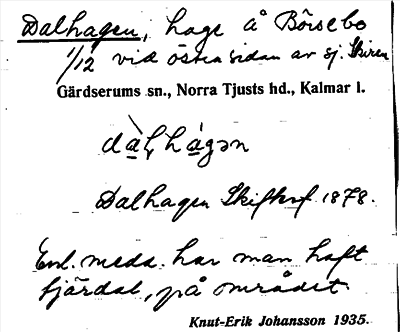 Dalhagen, hage å Börsebo
1/12 vid östra sidan av sj. Skiren
Gärdserums sn., Norra Tjusts hd., Kalmar l.
Dalhagen Skifteskf 1878.
Enl. medd. har man haft
fjärdal, på området.
Knut-Erik Johansson 1935.